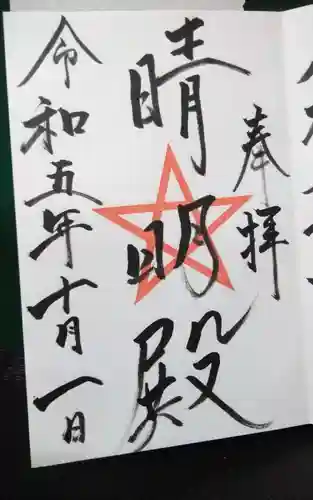 奉拝
晴明殿
令和五年十月一日